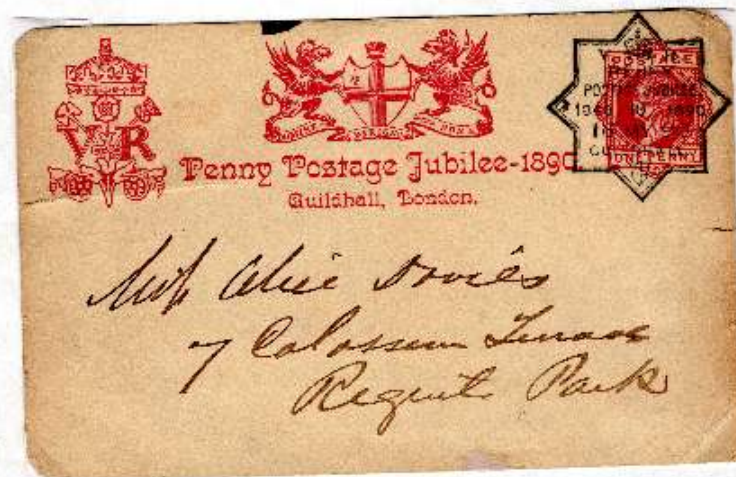 V R
Penny Postage Jubilee-1890
Guildhall, London.
POSTAGE
POSTAGE JUBILEE
1890
ONE PENNY
Miss Alice Davies
7 Colosseum Terrace
Regents Park